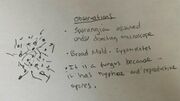 Observations
• Sporangium observed
under dissecting microscope
• Bread Mold - Zygomycetes
• It is a fungus because
it has hyphae and reproductive
spores.